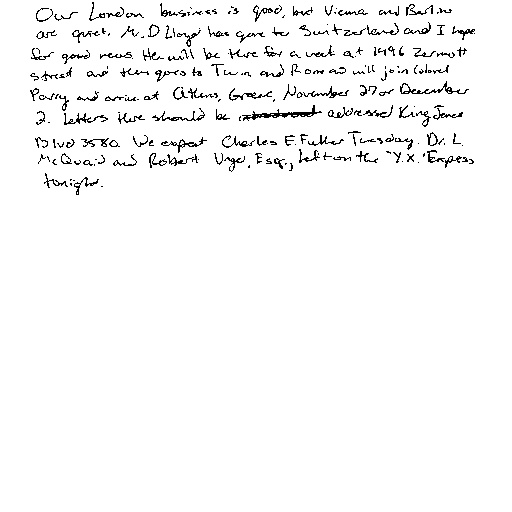 Our London business is good, but Vienna and Berlin
are quiet. Mr. D Lloyd has gone to Switzerland and I hope
for good news. He will be there for a week at 1496 Zermott
street and then goes to Turin and Rome and will join Colonel
Parry and arrive at Athens, Greece, November 27 or December
2. Letters there should be addressed King James
Blvd 3580. We expect Charles E. Fuller Tuesday. Dr. L.
McQuaid and Robert Unger, Esq., left on the "Y.X." Express
tonight.